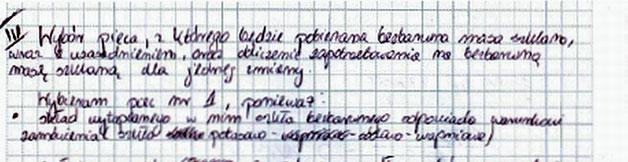 III Wybór pieca, z którego będzie pobierana bezbarwna masa szklana,
wraz z uzasadnieniem, oraz obliczenie zapotrzebowania na bezbarwną
masę szklaną dla jednej zmiany.
Wybieram piec nr 1, ponieważ:
• skład wytapianego w nim szkła bezbarwnego odpowiada warunkowi
zamówienia ( szkło potasowo - ołowo - wapniowe)